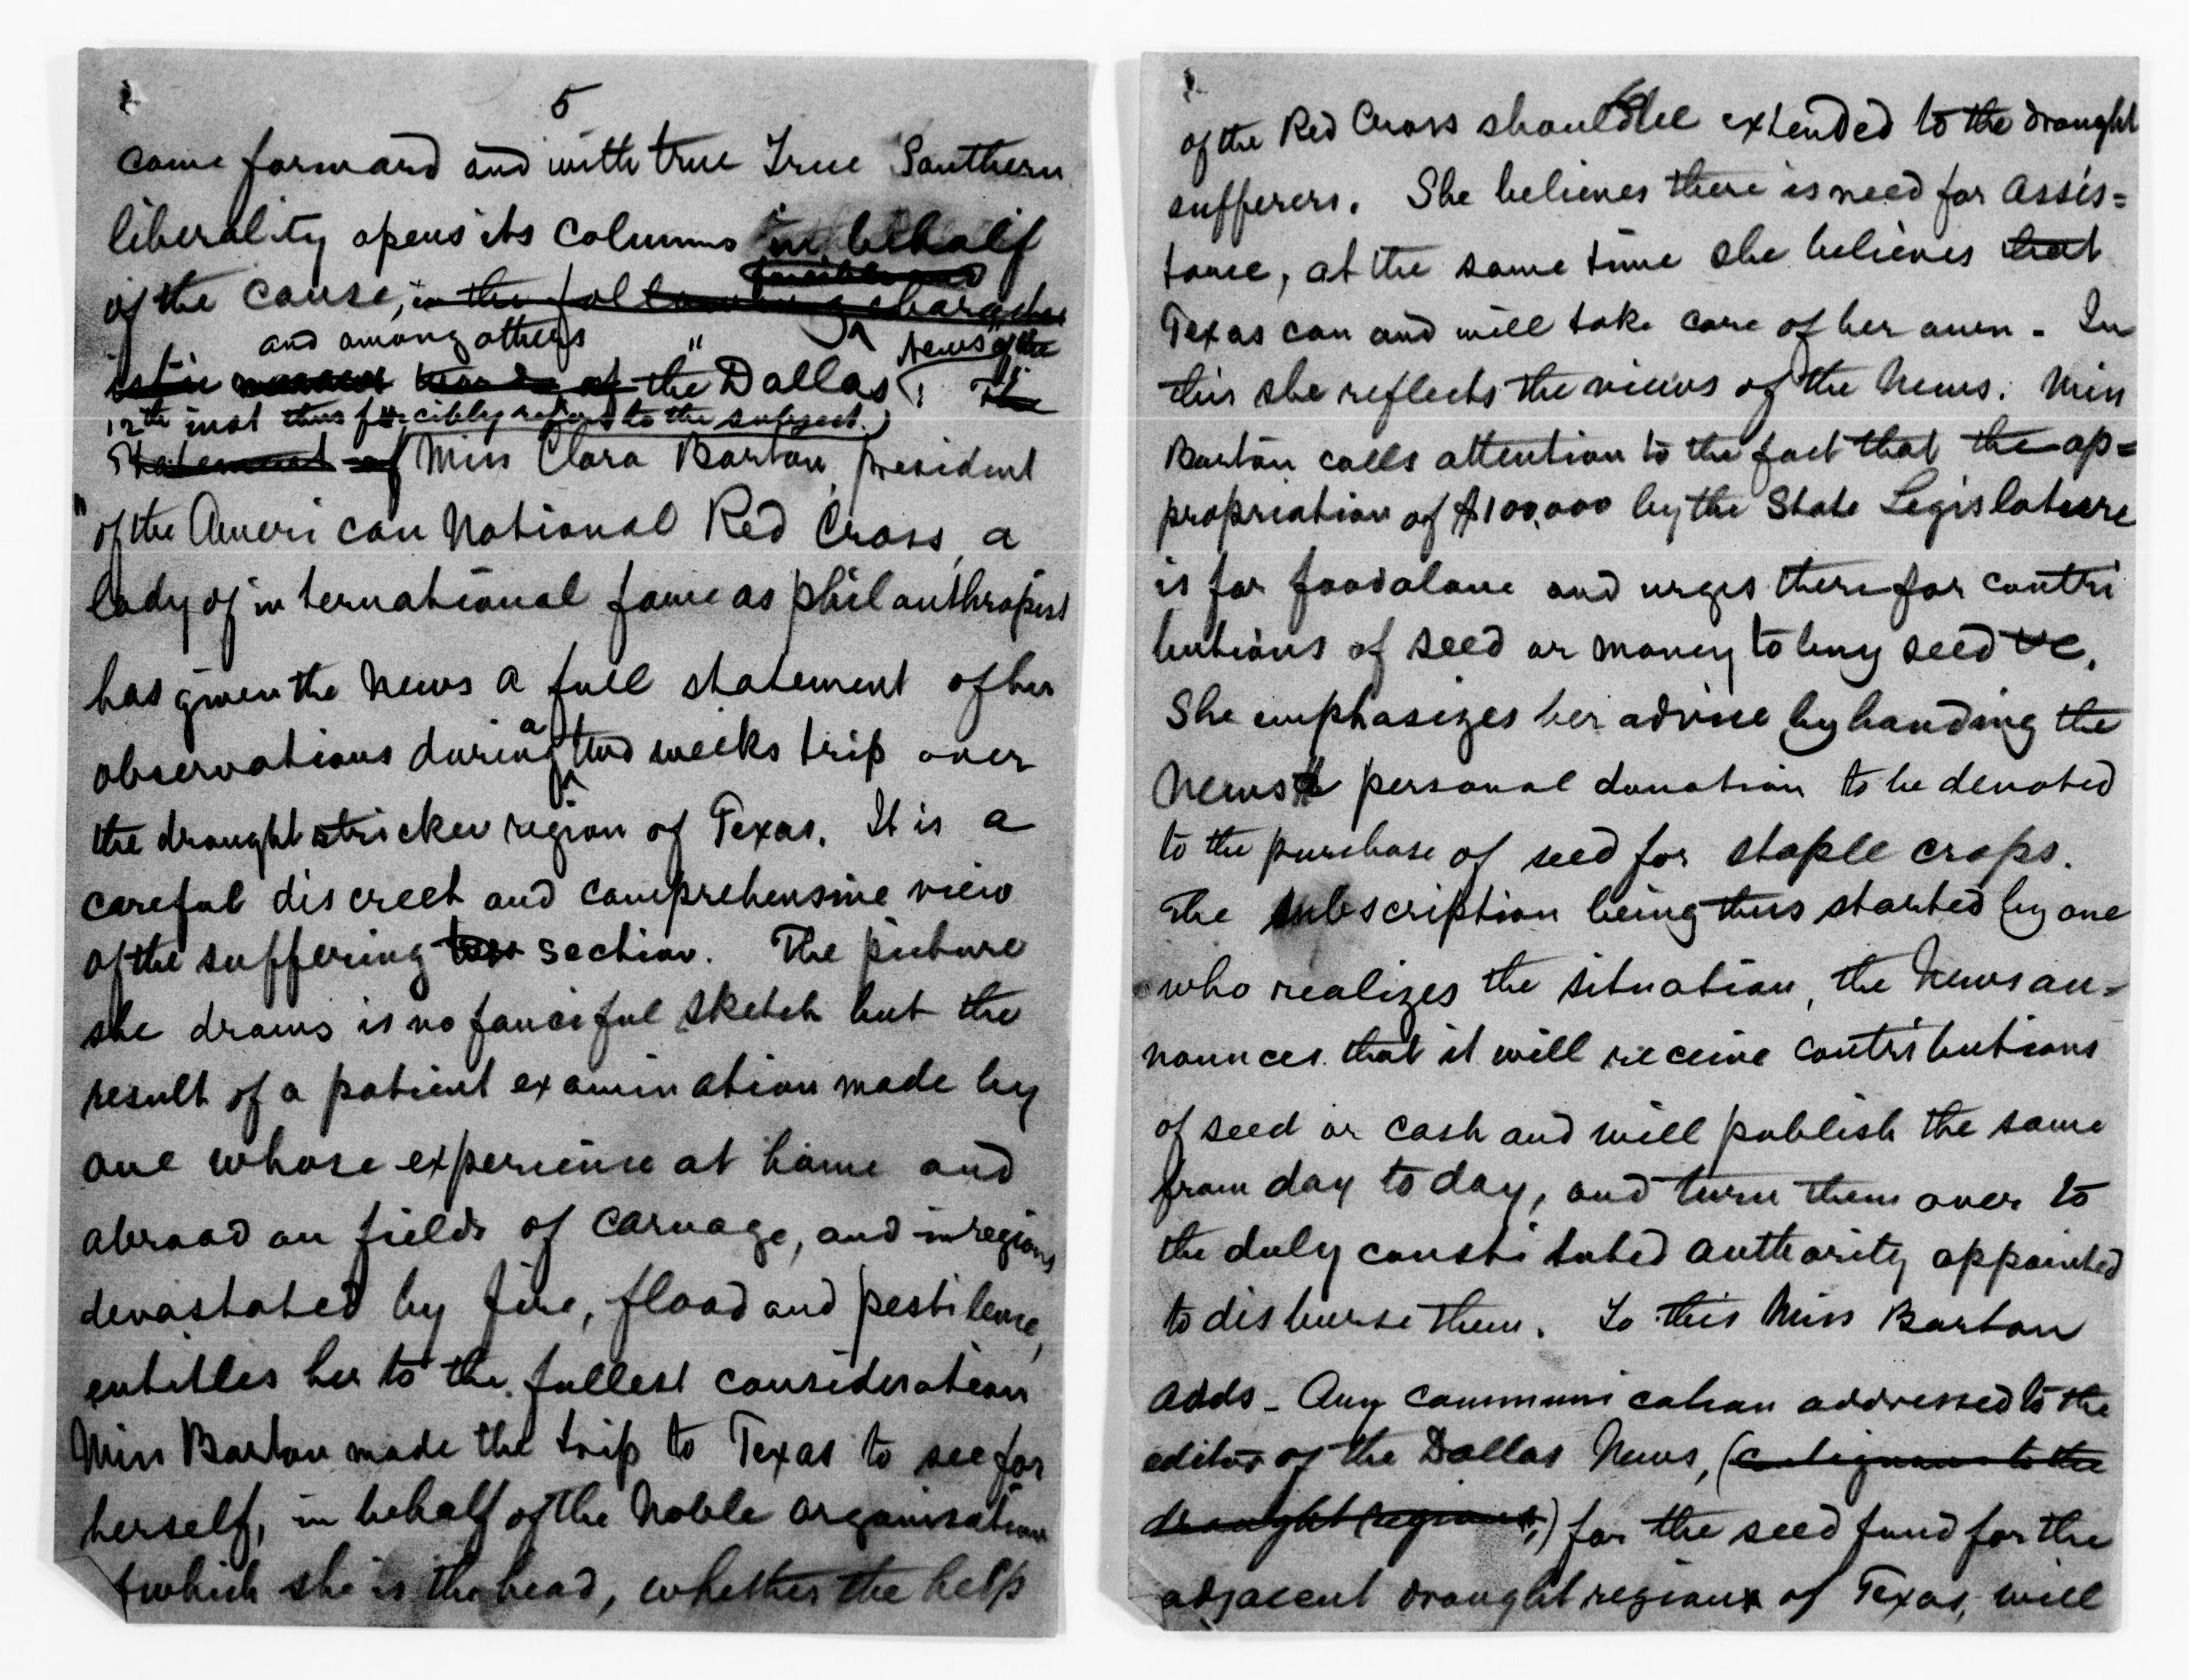 5
come forward and with true True Southern
liberality opens its columns in behalf
forcible and
of the cause, in the following character
and among others
News of the
istic words of the "Dallas
12th inst thus forcibly refers to the subject.)
Statement of Miss Clara Barton, president
"of the American National Red Cross, a
lady of international fame as philanthropist
has given the News a full statement of her
observations during a two weeks trip over
the drought stricken region of Texas. It is a
careful discreet and comprehensive view
of the suffering section. The picture
she draws is no fanciful sketch but the
result of a patient examination made by
one whose experience at home and
abroad on fields of carnage, and in regions
devastated by fire, flood and pestilence,
entitles her to the fullest consideration
Miss Barton made the trip to Texas to see for
herself, in behalf of the Noble organization
of which she is the head, whether the help
6
of the Red Cross should be extended to the drought
sufferers. She believes there is need for assis=
tance, at the same time she believes that
Texas can and will take care of her own - In
this she reflects the views of the News. Miss
Barton calls attention to the fact that the ap=
propriation of $100,000 by the State Legislature
is for food alone and urges therefor contri
butions of seed or money to buy seed &c.
She emphasizes her advise by handing the
News a personal donation to be devoted
to the purchase of seed for staple crops.
The subscription being thus started by one
who realizes the situation, the News an-
nounces that it will receive contributions
of seed or cash and will publish the same
from day to day, and turn them over to
the duly constituted authority appointed
to disburse them. To this Miss Barton
adds - Any communication addressed to the
editor of the Dallas News, (contiguous to the
drought regions,) for the seed fund for the
adjacent drought regions of Texas, will